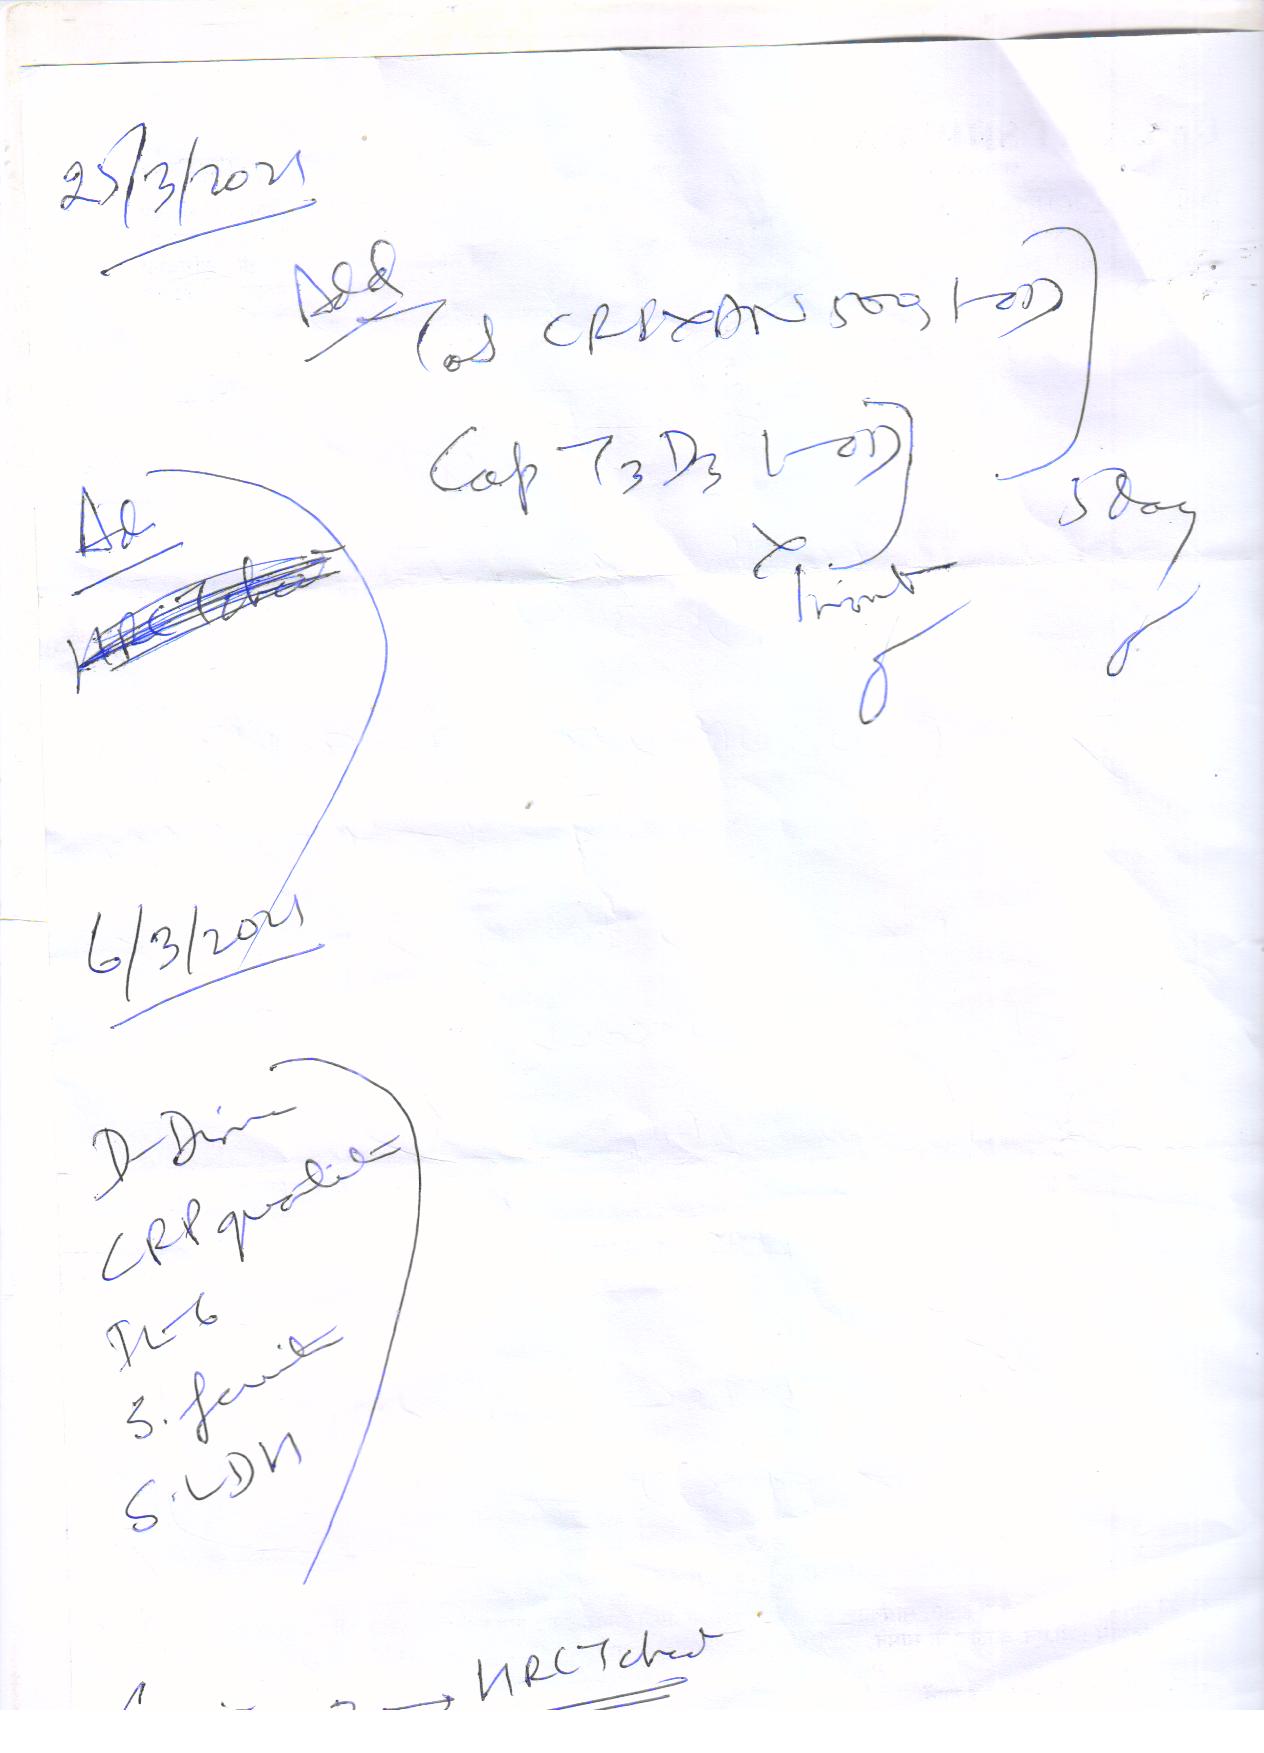 25/3/2021
Add
Tab CRPXAN 500 1-OD
Cap T3 D3 1-OD
5 day
x 1 mont
Ad
HRCT chest
6/3/2021
D-Dime
CRP quantit
IL-6
S. ferrit
S. LDH
→ HRCT chest